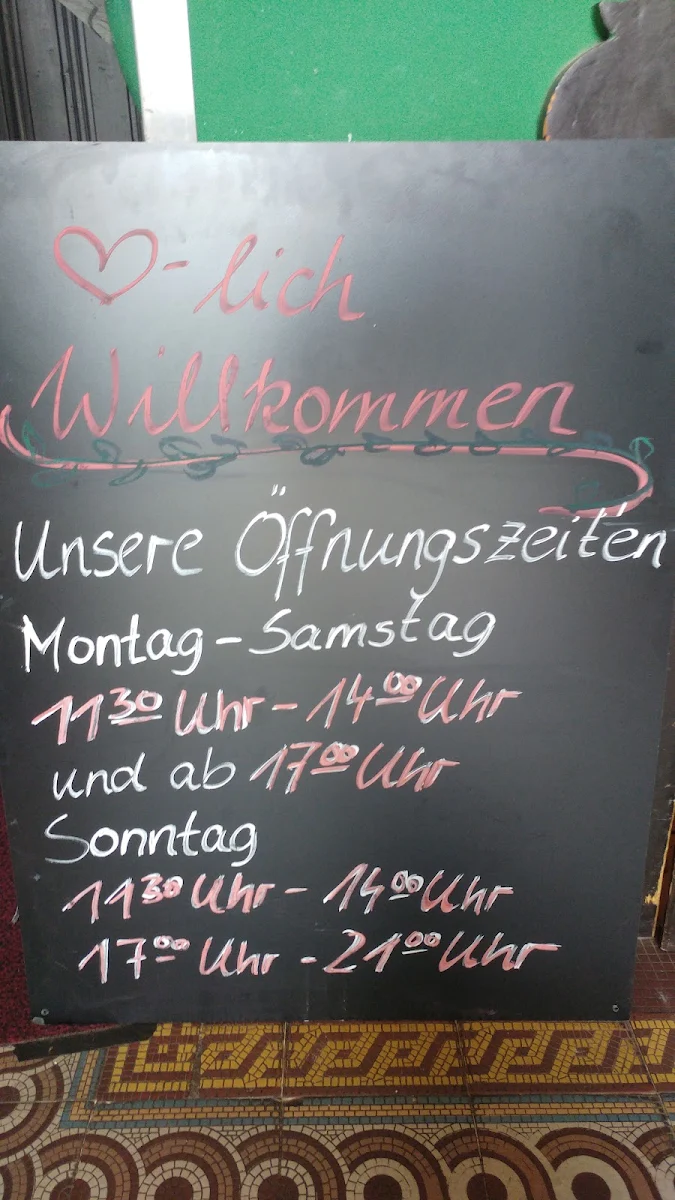 ♡-lich
Willkommen
Unsere Öffnungszeiten
Montag-Samstag
11³⁰ Uhr - 14⁰⁰ Uhr
und ab 17⁰⁰ Uhr
Sonntag
11³⁰ Uhr - 14⁰⁰ Uhr
17⁰⁰ Uhr - 21⁰⁰ Uhr